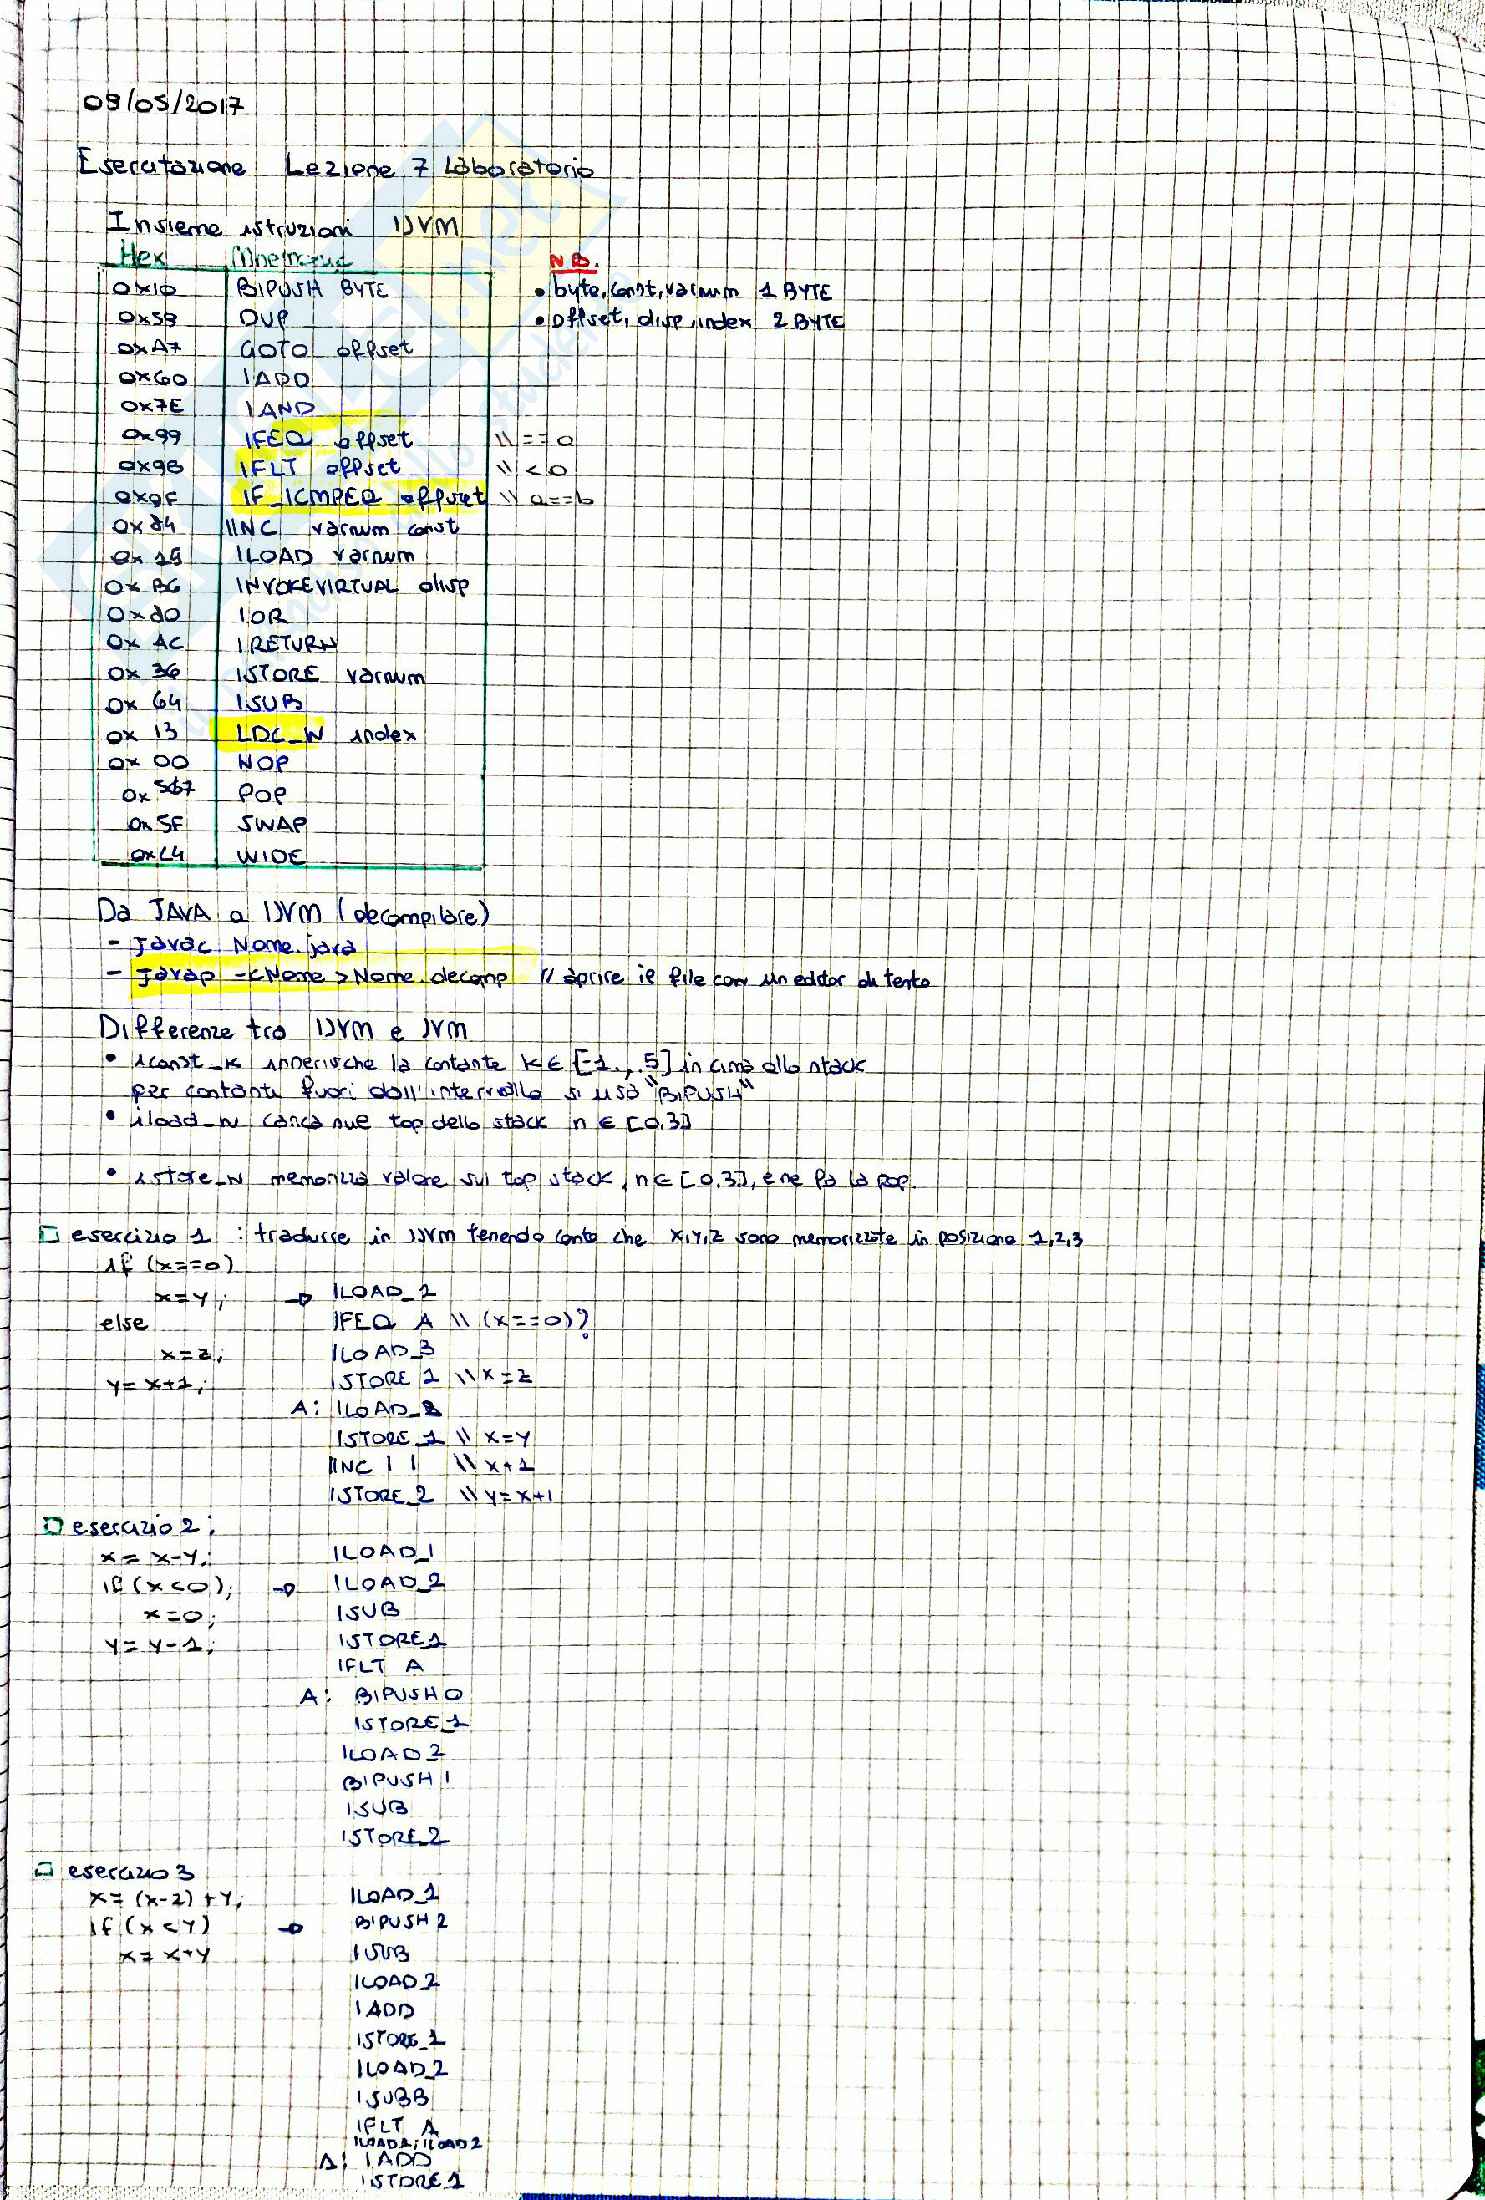 09/05/2017
Esercitazione Lezione 7 Laboratorio
Insieme istruzioni IJVM
Hex Mnemonic
N.B.
0x10 BIPUSH BYTE
• byte, const, varnum 1 BYTE
0x59 DUP
• offset, disp, index 2 BYTE
0xA7 GOTO offset
0x60 IADD
0x7E IAND
0x99 IFEQ offset \\ ==0
0x9B IFLT offset \\ <0
0x9F IF_ICMPEQ offset \\ a==b
0x84 IINC varnum const
0x15 ILOAD varnum
0x B6 INVOKEVIRTUAL disp
0x80 IOR
0x AC IRETURN
0x 36 ISTORE varnum
0x 64 ISUB
0x 13 LDC_W index
0x 00 NOP
0x POP
0x 5F SWAP
0xC4 WIDE
Da JAVA a IJVM (decompilare)
- javac Nome.java
- javap -c Nome > Nome.decomp // aprire il file con un editor di testo
Differenze tra IJVM e JVM
• iconst_k inserische la costante k ∈ [-1,..,5] in cima allo stack
per costanti fuori dall'intervallo si usa "BIPUSH"
• iload_N carica nel top dello stack n ∈ [0,3]
• istore_N memorizza valore sul top stack, n ∈ [0,3], e ne fa la pop.
esercizio 1 : tradurre in IJVM tenendo conto che x,y,z sono memorizzate in posizione 1,2,3
if (x==0)
x=y; → ILOAD_1
else IFEQ A \\ (x==0)?
x=z; ILOAD_3
y=x+1; ISTORE 1 \\ x=z
A: ILOAD_2
ISTORE_1 \\ x=y
IINC 1 1 \\ x+1
ISTORE_2 \\ y=x+1
esercizio 2:
x = x-y; ILOAD_1
if (x<0); → ILOAD_2
x=0; ISUB
y = y-1; ISTORE1
IFLT A
A: BIPUSH 0
ISTORE_1
ILOAD 2
BIPUSH 1
ISUB
ISTORE_2
esercizio 3
x = (x-2) + y; ILOAD_1
if (x<y) → BIPUSH 2
x = x+y ISUB
ILOAD 2
IADD
ISTORE_1
ILOAD_2
ISUBB
IFLT A
ILOAD1; ILOAD2
A: IADD
ISTORE 1